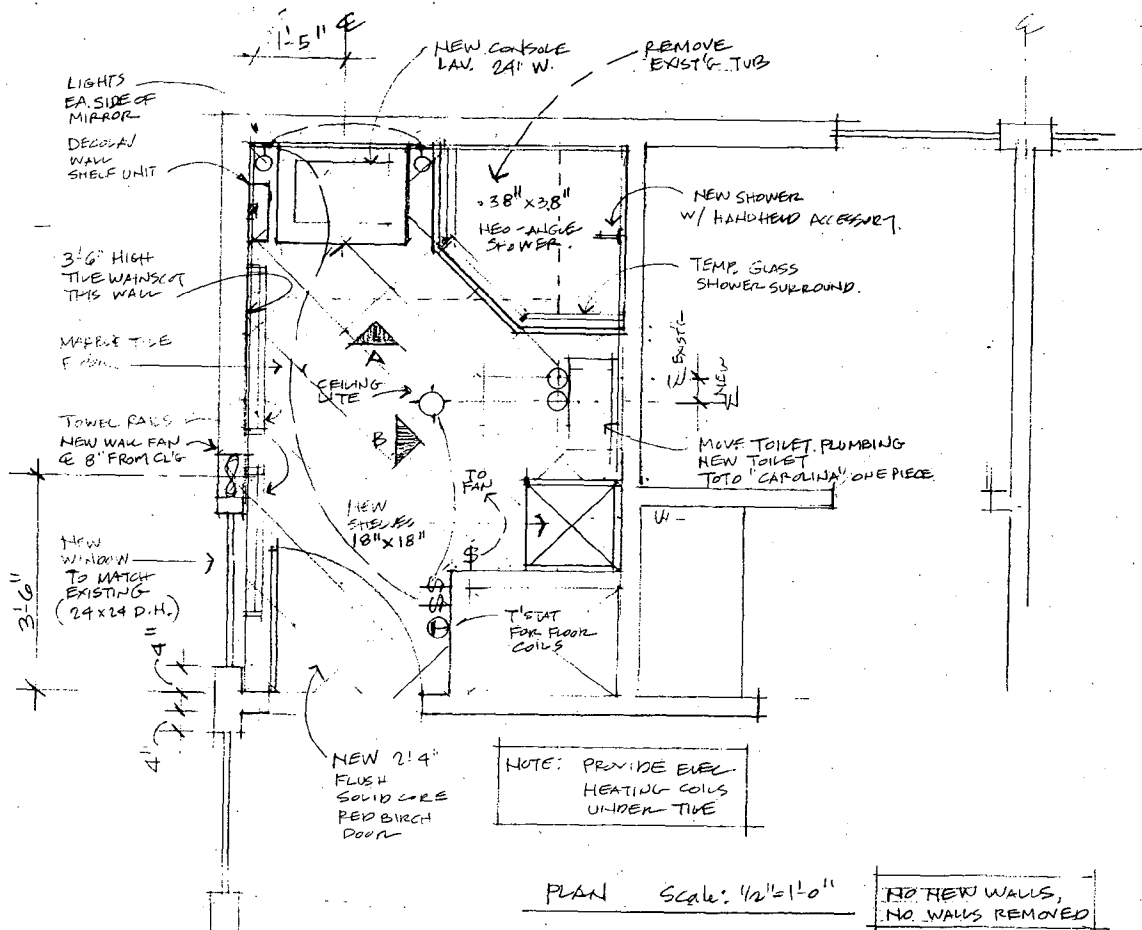 1'-5"
℄
℄
NEW CONSOLE
LAV. 24" W.
REMOVE
EXIST'G TUB
LIGHTS
EA. SIDE OF
MIRROR
DECOLAV
WALL
SHELF UNIT
38" X 38"
NEO-ANGLE
SHOWER
NEW SHOWER
W/ HANDHELD ACCESSORY.
3'-6" HIGH
TILE WAINSCOT
THIS WALL
TEMP. GLASS
SHOWER SURROUND.
MARBLE TILE
A
CEILING
LITE
℄ EXIST'G
℄ NEW
TOWEL RAILS
NEW WALL FAN
℄ 8" FROM CL'G
B
MOVE TOILET PLUMBING
NEW TOILET
TOTO "CAROLINA" ONE PIECE.
TO
FAN
NEW
SHELVES
18" X 18"
$
$
$
NEW
WINDOW
TO MATCH
EXISTING
(24 X 24 D.H.)
3'-6"
T'STAT
FOR FLOOR
COILS
4"
4"
NEW 2'4"
FLUSH
SOLID CORE
RED BIRCH
DOOR
NOTE: PROVIDE ELEC
HEATING COILS
UNDER TILE
PLAN Scale: 1/2"=1'-0"
NO NEW WALLS,
NO WALLS REMOVED